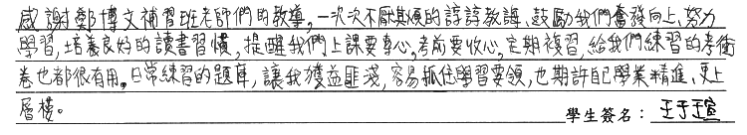 感謝鄭博文補習班老師們的教導,一次次不厭其煩的諄諄教誨、鼓勵我們奮發向上、努力
學習,培養良好的讀書習慣,提醒我們上課要專心,考前要收心,定期複習,給我們練習的考衝
卷也都很有用。日常練習的題庫,讓我獲益匪淺,容易抓住學習要領,也期許自己學業精進、更上
層樓。
學生簽名:王于瑄